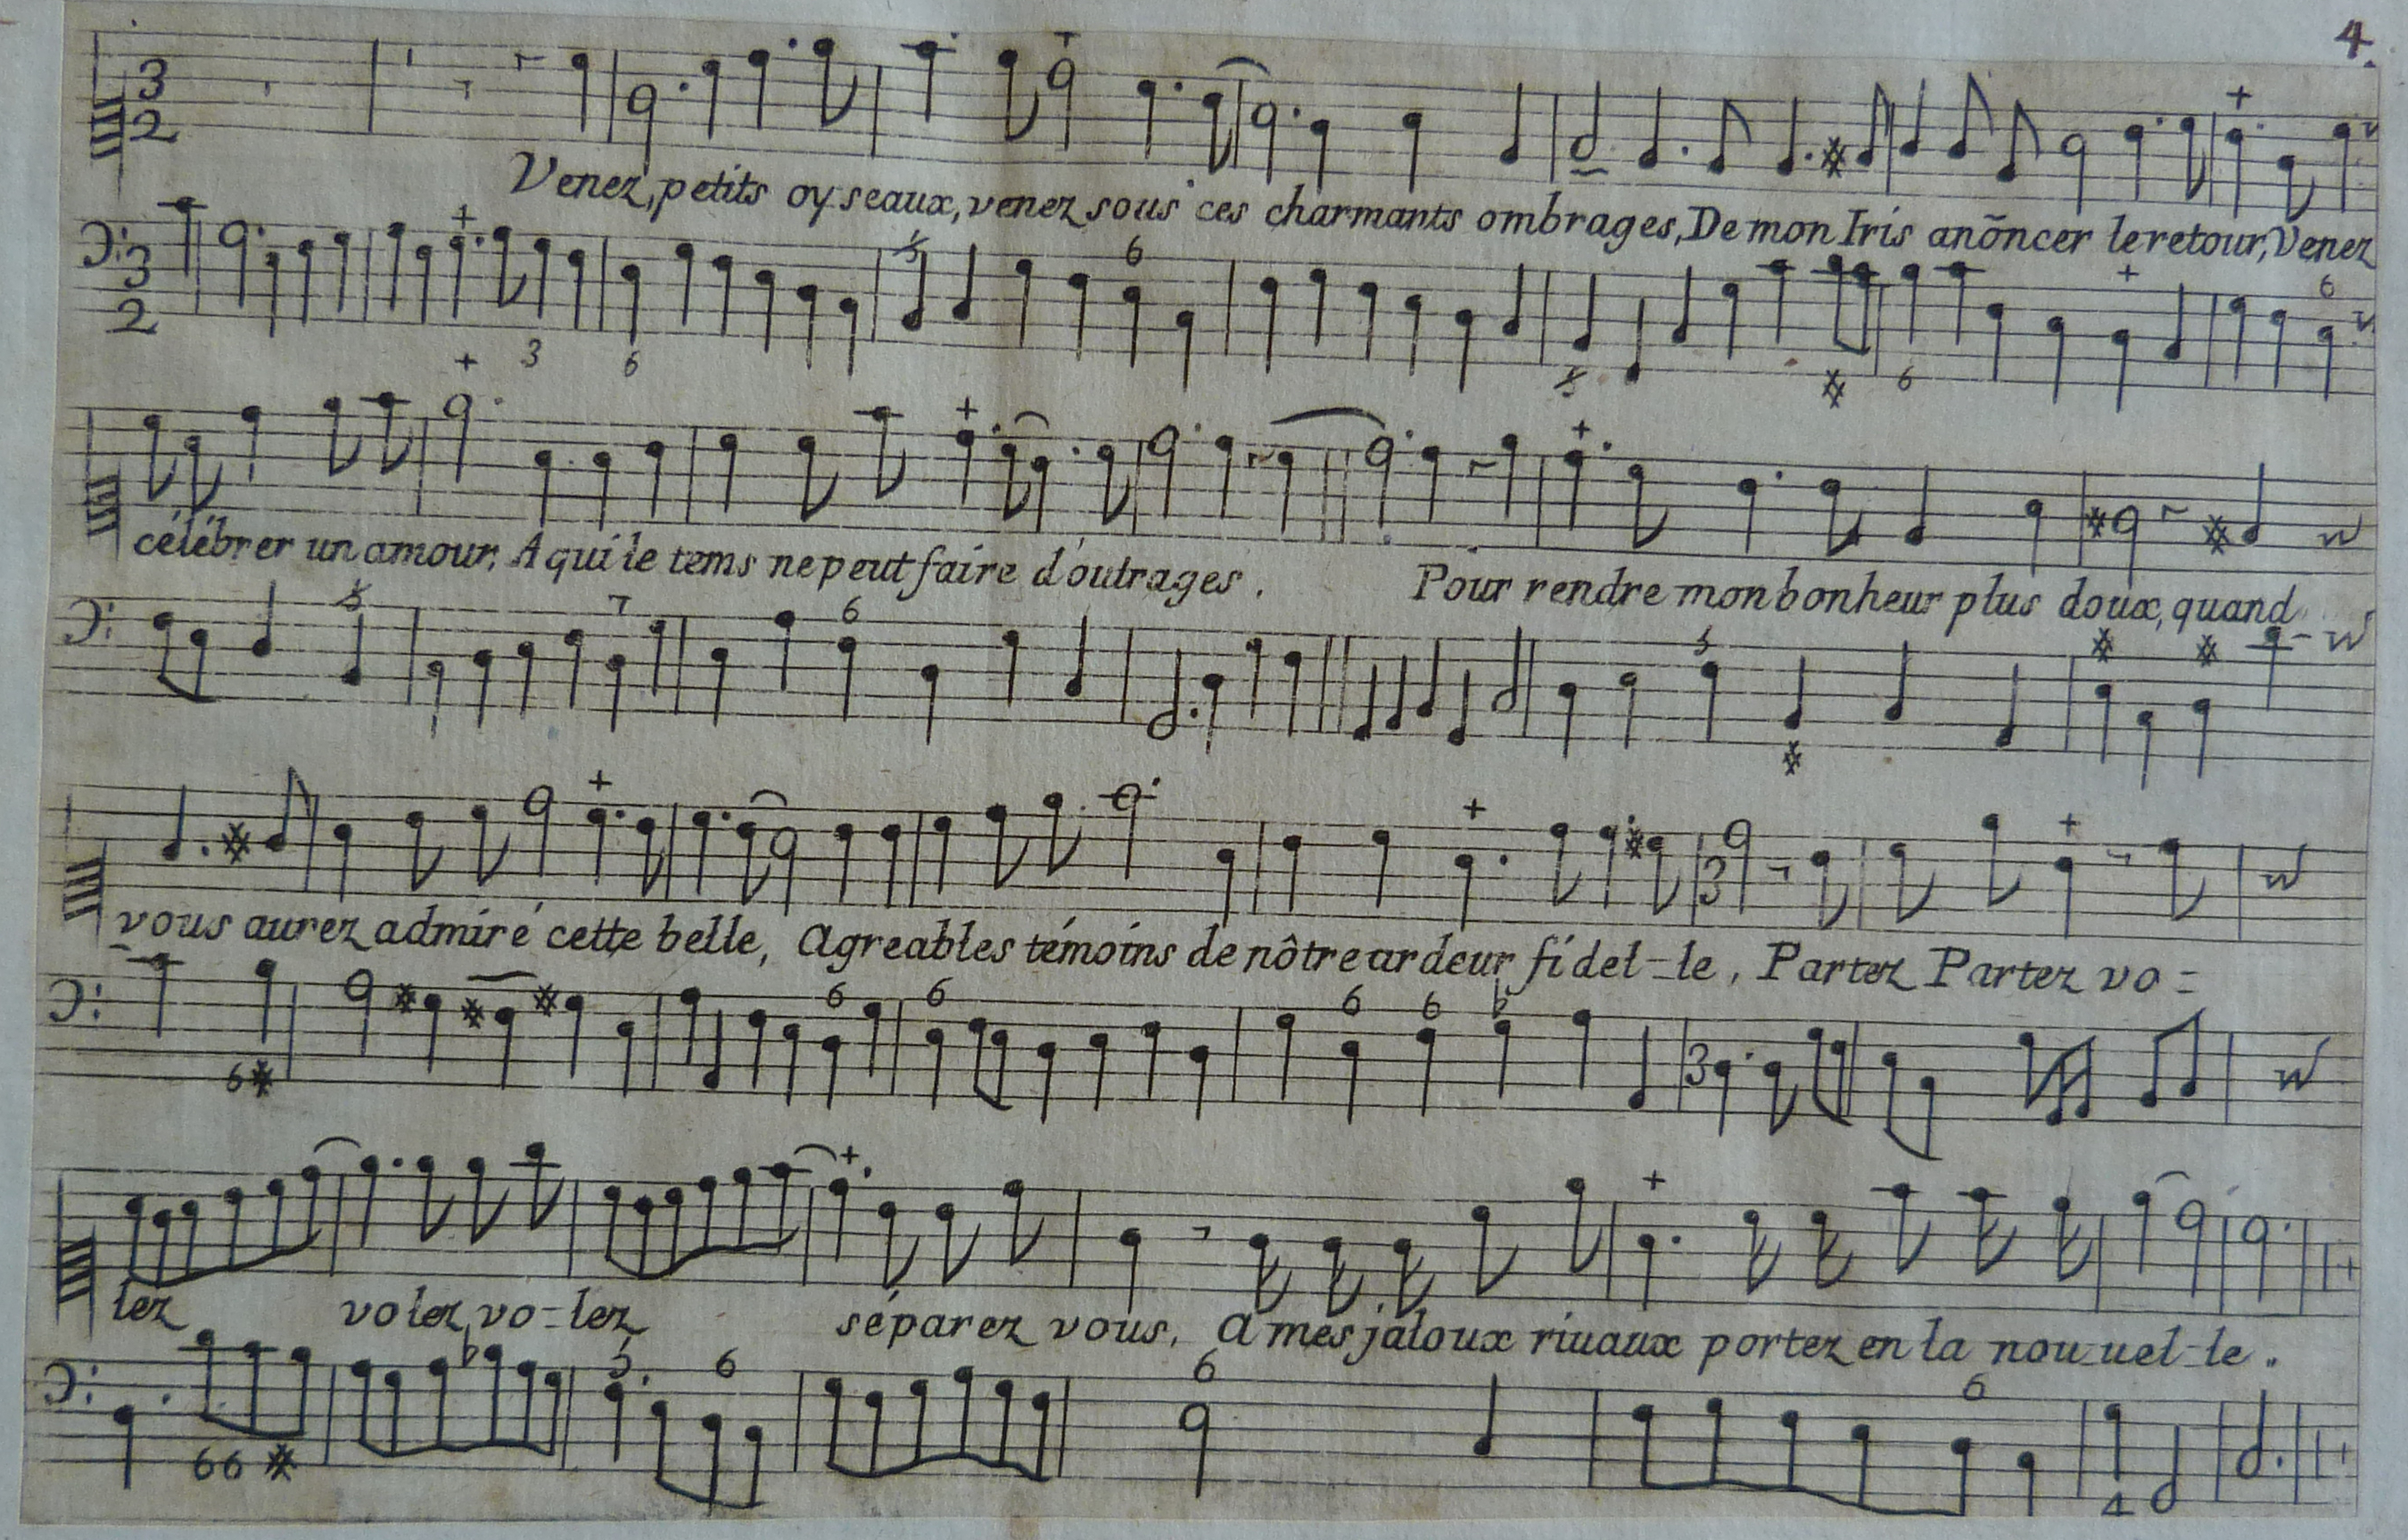 4.
3
2
Venez, petits oyseaux, venez sous ces charmants ombrages, De mon Iris anõncer le retour, Venez
6
3
2
3 6 6
célébrer un amour, A qui le tems ne peut faire d'outrages. Pour rendre mon bonheur plus doux, quand
7 6
3
vous aurez admiré cette belle, Agreables témoins de nôtre ardeur fidel-le, Partez Partez vo=
6 6 6 6
3
6
lez volez, vo-lez séparez vous, A mes jaloux riuaux portez en la nou-uel-le.
5 6 6 6
66
4